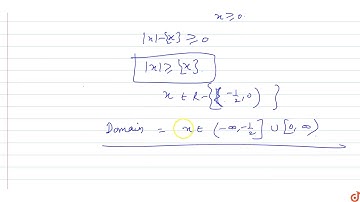 x ≥ 0
|x| - {x} ≥ 0
|x| ≥ {x}.
x ∈ R - { [-1/2, 0) }
Domain = x ∈ (-∞, -1/2] ∪ [0, ∞)